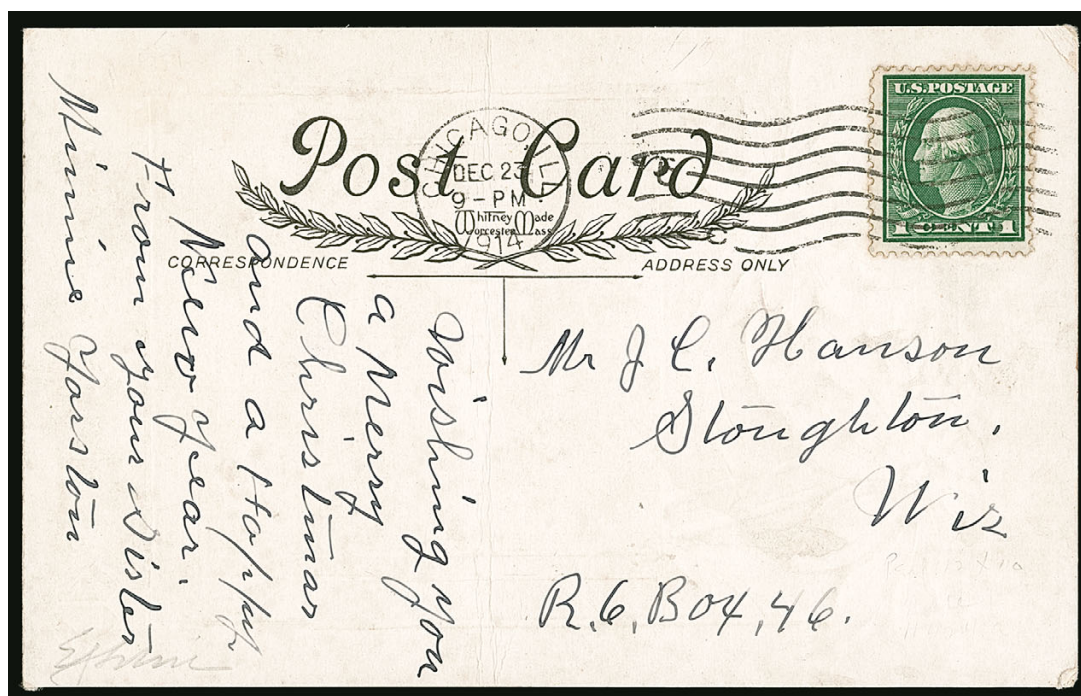 Post Card
CHICAGO, ILL.
DEC 23
9 - PM
1914
Whitney Made
Worcester Mass
U.S. POSTAGE
1 CENT 1
CORRESPONDENCE
ADDRESS ONLY
Wishing you
a Merry
Christmas
and a Happy
New Year.
From your Sister
Minnie Yorston
Mr J C. Hanson
Stoughton,
Wis
R. 6, Box, 46.